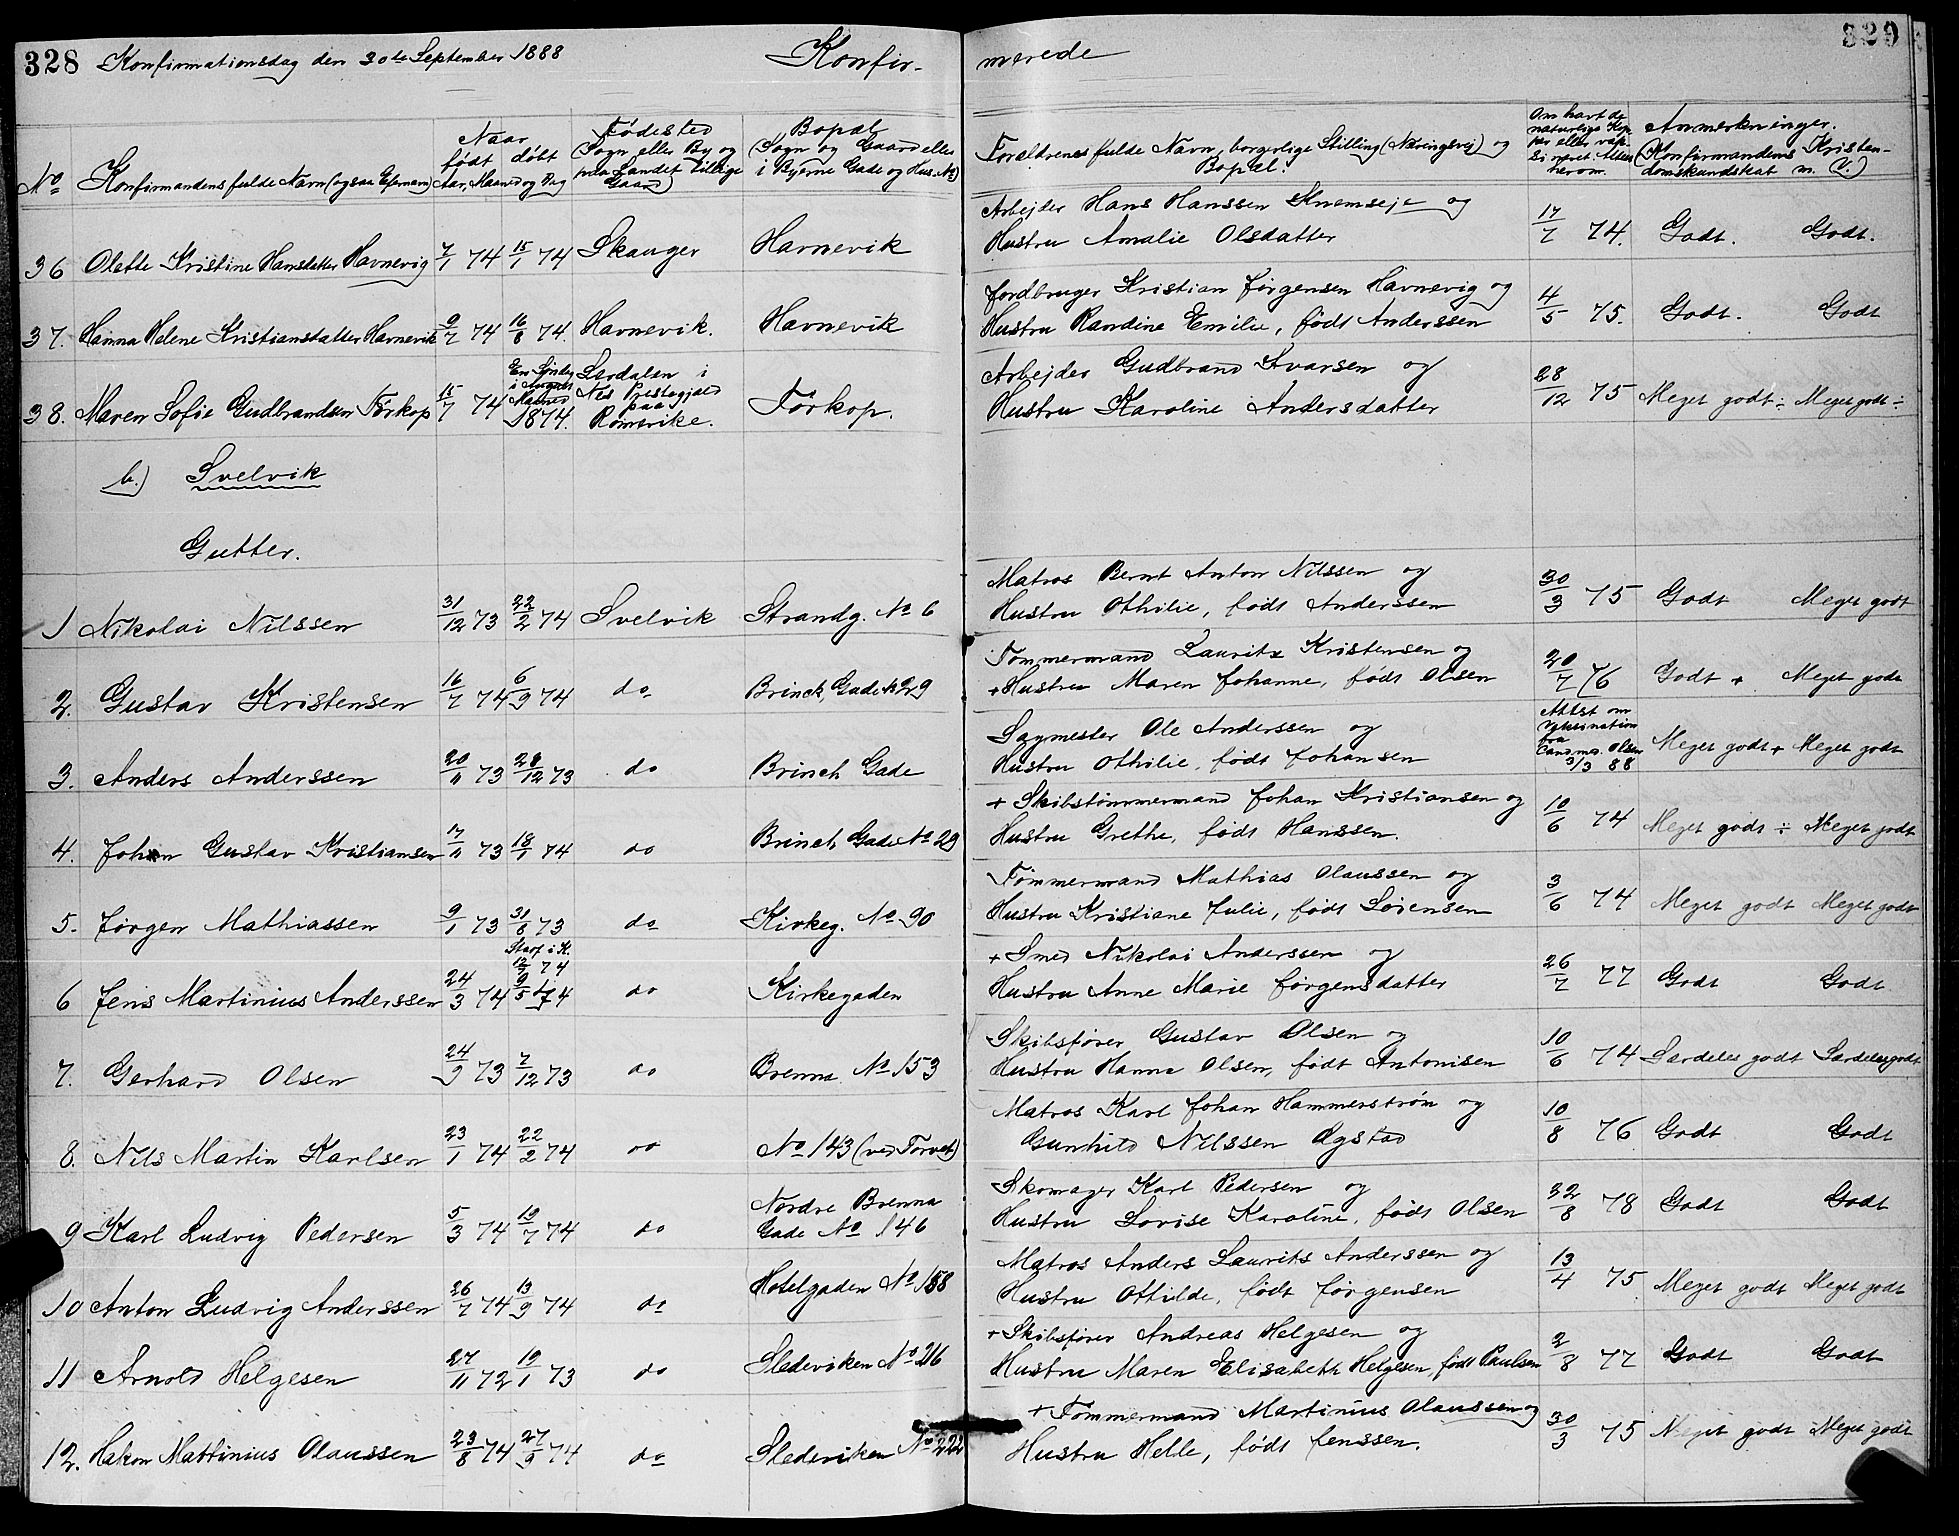 328 Konfirmationsdag den 30te September 1888 Konfir-
merede 329
No
Konfirmandens fulde Navn (ogsaa Efternavn)
Naar
født døbt
Aar, Maaned og Dag
Fødested
Sogn eller By og
paa Landet tillige
Gaard
Bopæl
Sogn og Gaard eller
i Byerne Gade og Hus-No
Forældrenes fulde Navn, borgerlige Stilling (Næringsvej) og
Bopæl.
Om havt de
naturlige Kop-
per eller vac-
herom.
Anmerkninger.
(Konfirmandens Kristen-
domskundskab m. V.)
36 Olette Kristine Hansdatter Havnevig 7/1 74 15/1 74 Skauger Havnevik
Arbejder Hans Hanssen Knemseje og
Hustru Amalie Olsdatter 17/7 74. Godt. Godt.
37. Hanna Helene Kristiansdatter Havnevik 9/7 74 16/8 74. Havnevik. Havnevik
Jordbruger Kristian Jørgensen Havnevig og
Hustru Randine Emilie, født Anderssen 4/5 75. Godt. Godt
38. Maren Sofie Gudbrandsen Tørkop 15/7 74
En Søndag
i August
Maaned
1874.
Sørdalen i
Nes Prestegjæld
paa
Romerike.
Tørkop.
Arbejder Gudbrand Ivarsen og
Hustru Karoline Andersdatter 28/12 75 Meget godt ÷ Meget godt ÷
b.) Svelvik
Gutter.
1 Nikolai Nilssen 31/12 73 22/2 74 Svelvik Strandg. No 6
Matros Bernt Anton Nilssen og
Hustru Othilie, født Anderssen 30/3 75 Godt Meget godt
2. Gustav Kristensen 16/7 74 6/9 74 do Brinch Gade No 29
Tømmermand Lauritz Kristensen og
+ Hustru Maren Johanne, født Olsen 20/7 76 Godt + Meget godt
3. Anders Anderssen 20/11 73 28/12 73 do Brinch Gade
Sagmester Ole Anderssen og
Hustru Othilie, født Johansen
Attest om
Vaksination
fra
Cand. med. Olsen
3/3 88
Meget godt + Meget godt
4. Johan Gustav Kristiansen 17/11 73 18/1 74 do Brinch Gade No 29
+ Skibstømmermand Johan Kristiansen og
Hustru Grethe, født Hanssen. 10/6 74 Meget godt ÷ Meget godt
5. Jørgen Mathiassen 9/1 73 31/8 73 do Kirkeg. No 90
Tømmermand Mathias Olaussen og
Hustru Kristiane Julie, født Sørensen 3/6 74 Meget godt Meget godt
6 Jens Martinius Anderssen 24/3 74
Stadf. i K.
12/7 74
9/5 74
do Kirkegaden
+ Smed Nikolai Anderssen og
Hustru Anne Marie Jørgensdatter 26/7 77 Godt Godt
7. Gerhard Olsen 24/9 73 7/12 73 do Brenna No 153
Skibsfører Gustav Olsen og
Hustru Hanna Olsen, født Antonisen 10/6 74 Særdeles godt Særdeles godt
8. Nils Martin Karlsen 23/1 74 22/2 74 do No 143 (ved Torvet)
Matros Karl Johan Hammerstrøm og
Gunhild Nilssen Øgstad 10/8 76 Godt Godt
9 Karl Ludvig Pedersen 5/3 74 19/7 74 do
Nordre Brenna
Gade No 146
Skomager Karl Pedersen og
Hustru Lovise Karoline, født Olsen 32/8 78 Godt Godt
10 Anton Ludvig Anderssen 26/7 74 13/9 74 do Hotelgaden No 158
Matros Anders Laurits Anderssen og
Hustru Othilde, født Jørgensen 13/4 75 Meget godt Meget godt
11 Arnold Helgesen 27/11 72 19/1 73 do Sledeviken No 216
+ Skibsfører Andreas Helgesen og
Hustru Maren Elisabeth Helgesen, født Paulsen 2/8 77 Godt Godt
12. Hakon Martinius Olaussen 23/8 74 27/9 74 do Sledeviken No 222
+ Tømmermand Martinius Olaussen og
Hustru Helle, født Jenssen. 30/3 75 Meget godt Meget godt